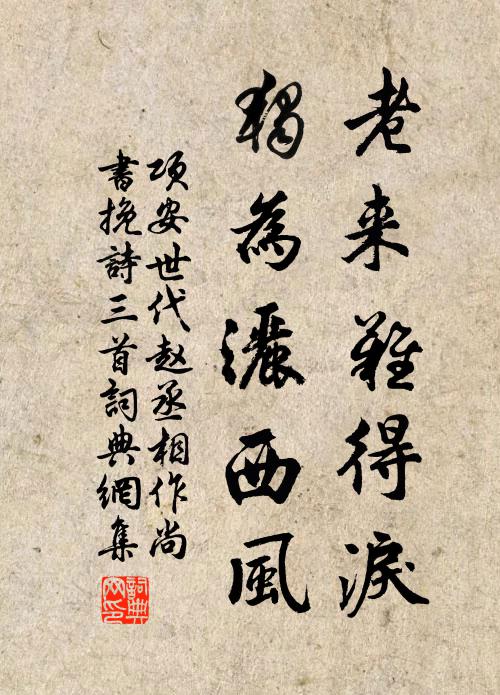 老来難得淚
獨為灑西風
項安世代赵丞相作尚
書挽詩三首詞典網集
詞典网印